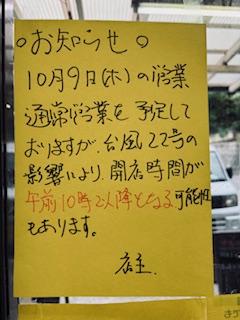 ○お知らせ○
10月9日(木)の営業
通常営業を予定して
おりますが、台風22号の
影響により、開店時間が
午前10時以降となる可能性
もあります。
店主.